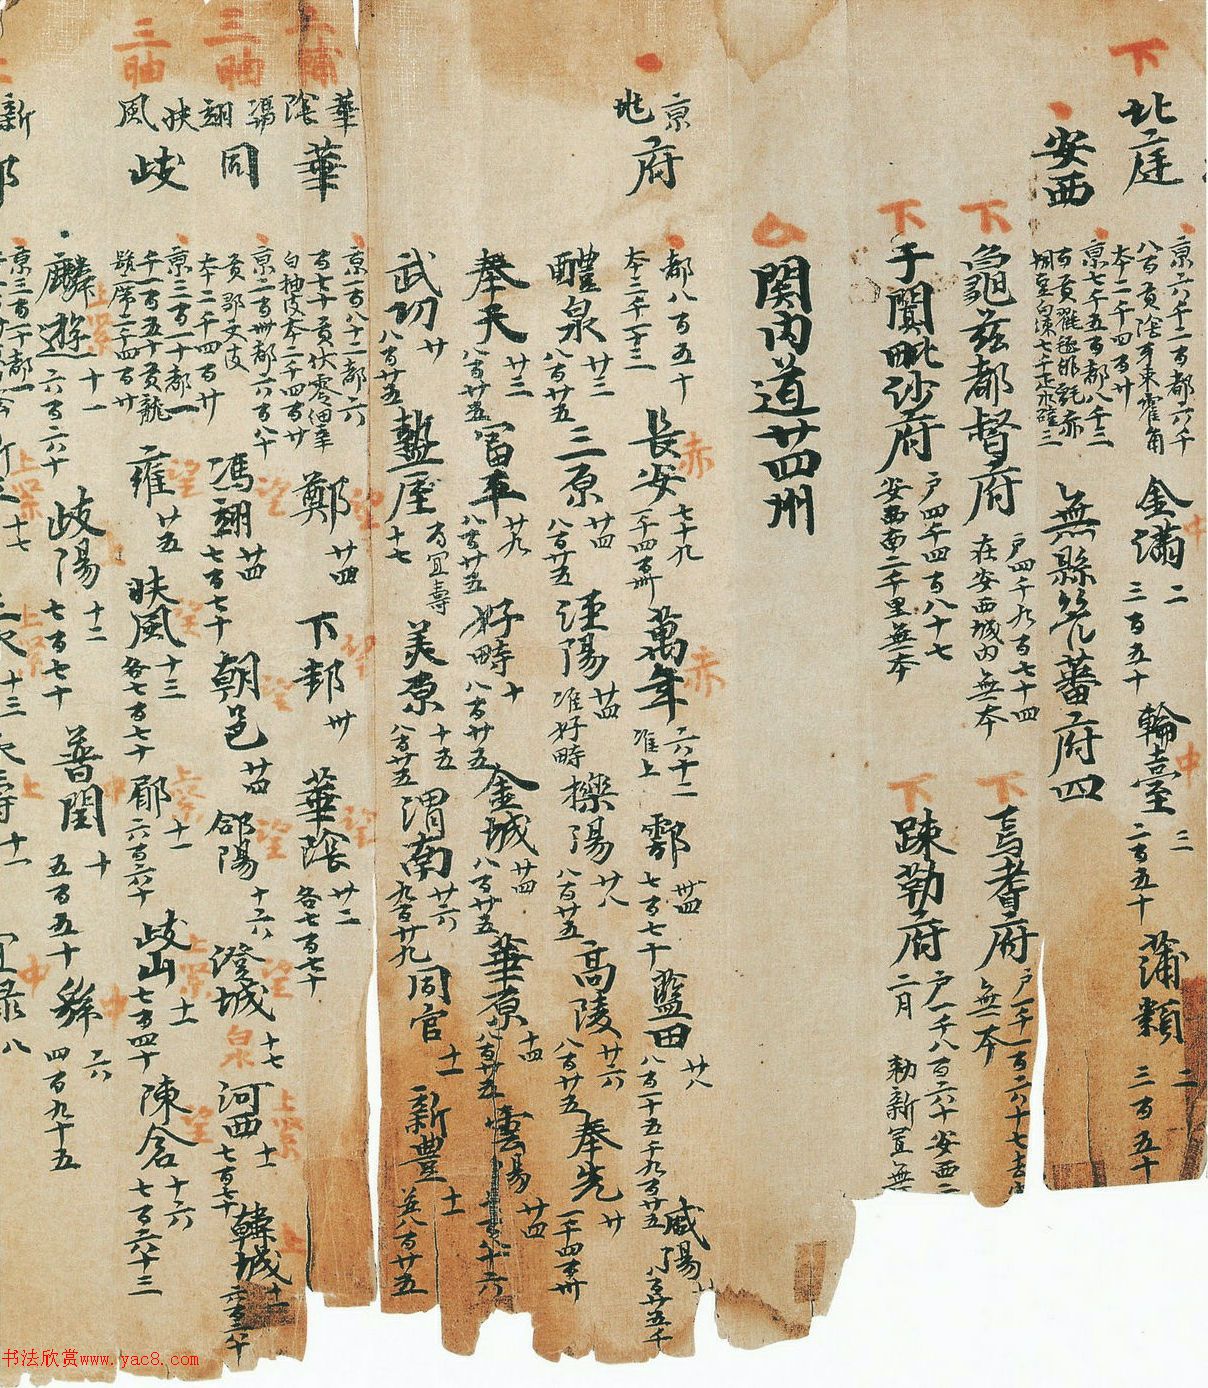 下
北庭
京六千二百都六千
八百貢陰牙束霍角
本二千四百廿
金滿 二 三百五十 中
輪臺 三 二百五十 中
蒲類 二 三百五十
安西
京七千五百都八千三
無縣管蕃府四
下
龜茲都督府 戶四千九百七十四
在安西城內無本
下
焉耆府 戶一千一百六十七去
無本
下
于闐毗沙府 戶四千四百八十七
安西南二千里無本
下
疎勒府 戶一千八百六十安西二
二月 勅新置無
關內道廿四州
京兆府
都八百五十
本二千二十三
長安 七十九 一千四百卌 赤
萬年 六十二 准上 赤
鄠 卌四 七百七十
藍田 廿八
咸陽
醴泉 廿三 八百廿五
三原 廿四 八百廿五
涇陽 廿四 准好畤
櫟陽 廿八 八百廿五
高陵 廿六 八百廿五
奉先 廿 一千四百卌
奉天 廿三 八百廿五
富平 廿九 八百廿五
好畤 十 八百廿五
金城 廿四 八百廿五
華原 十四 八百廿五
雲陽 廿四
武功 廿 八百廿五
盩厔 十七 為宜壽
美原 十五 八百廿五
渭南 廿六 九百廿九
同官 十一
新豐 十二 並八百廿五
上輔
華陰 華
京一百八十二都六
百七十貢伏零細辛
白柚皮本二千四百廿
鄭 廿四 望
下邽 卅 望
華陰 廿二 各七百七十 望
三輔
馮翊 同
京二百卅都六百八十
貢鄒文皮
本二千四百廿
馮翊 廿四 七百七十 望
朝邑 廿四 望
郃陽 十六 望
澄城 十七 望
泉
河西 十二 七百七十 上緊
韓城 十二 上
三輔
扶風 岐
京三百一十都一
千一百五十貢龍
鬚席二千四百廿
雍 廿五 望
扶風 十三 各七百七十 望
郿 十一 六百六十 上緊
岐山 十二 七百四十 上緊
陳倉 十六 七百六十三 望
麟遊 十一 六百六十 上緊
岐陽 十二 七百七十 上
普閏 十 五百五十 中
虢 六 四百九十五 中
新
京三百一十都一
十七 上緊
十三 上緊
壽 十一 上
宜祿 八 中
书法欣赏www.yac8.com